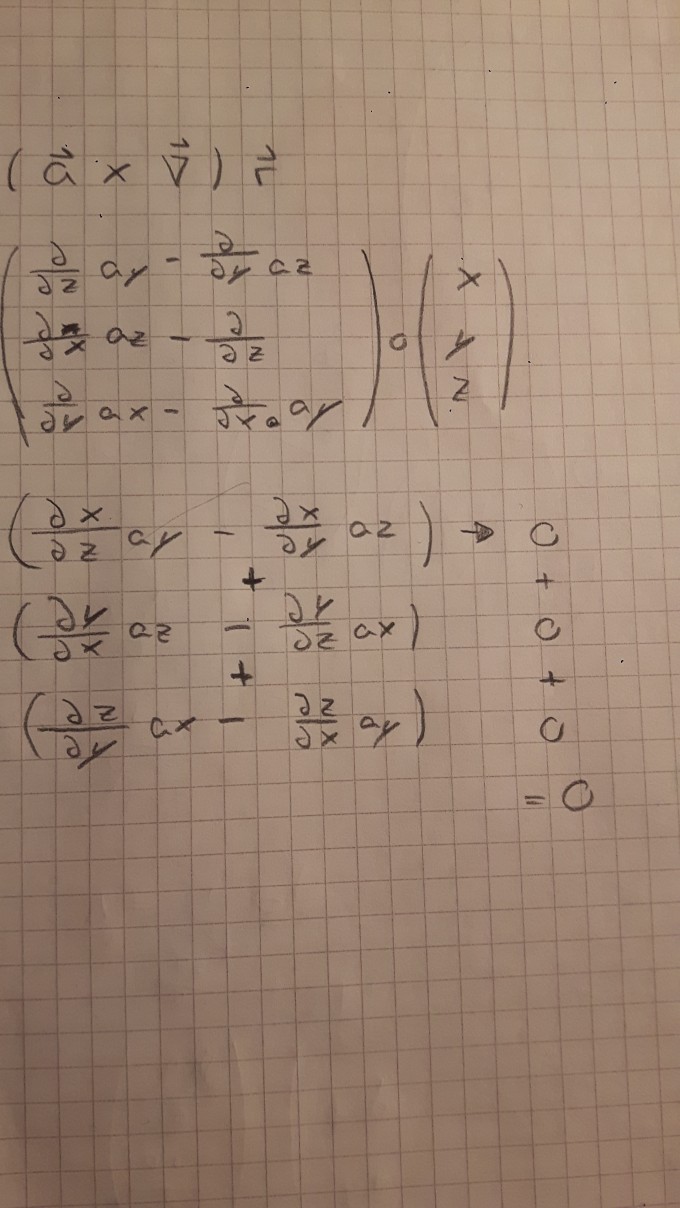 ( a⃗ x ∇⃗ ) r⃗
( ∂/∂z ay - ∂/∂y az
∂/∂x az - ∂/∂z
∂/∂y ax - ∂/∂x ay ) ∘ ( x
y
z )
( ∂x/∂z ay - ∂x/∂y az ) → 0
+ +
( ∂y/∂x az - ∂y/∂z ax ) 0
+ +
( ∂z/∂y ax - ∂z/∂x ay ) 0
= 0